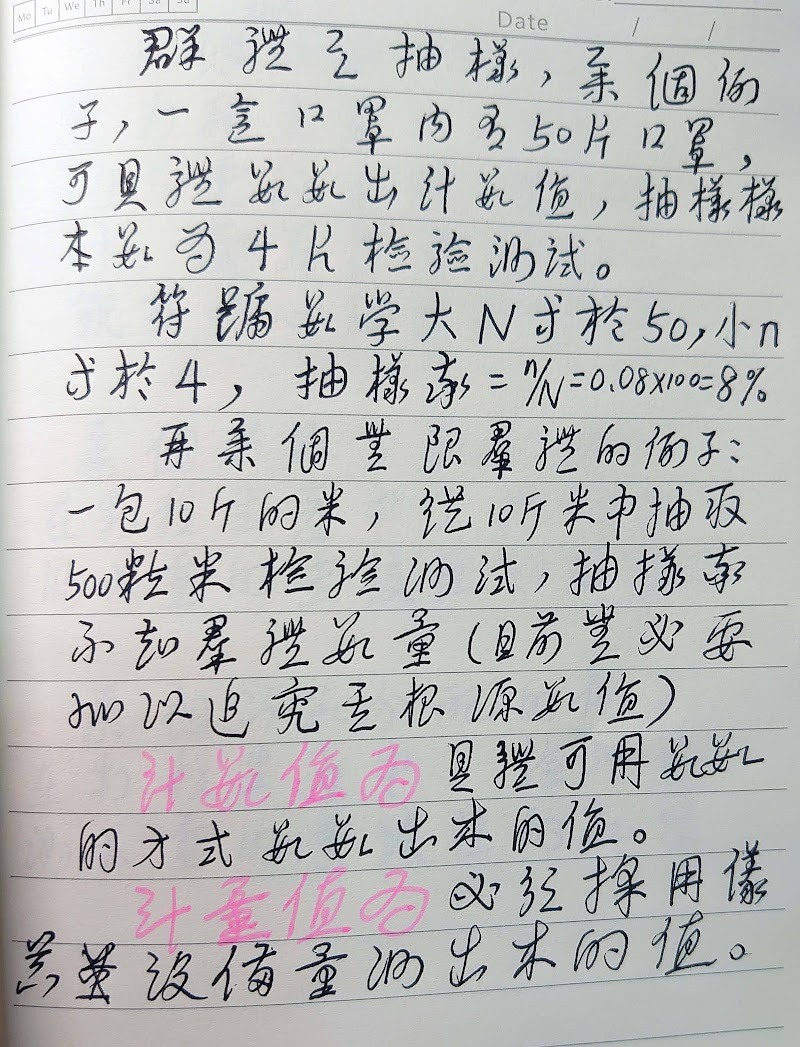 Mo Tu We Th Fr Sa Su
Date / /
群體之抽樣,某個例
子,一盒口罩內有50片口罩,
可具體數數出計數值,抽樣樣
本數為4片檢驗測試。
符號數学大N等於50,小n
等於4,抽樣率=n/N=0.08x100=8%
再某個無限羣體的例子:
一包10斤的米,從10斤米中抽取
500粒米檢驗測試,抽樣率
不知羣體數量(目前無必要
加以追究其根源數值)
計數值為 具體可用數數
的方式數數出來的值。
計量值為 必須採用儀
器設備量測出來的值。